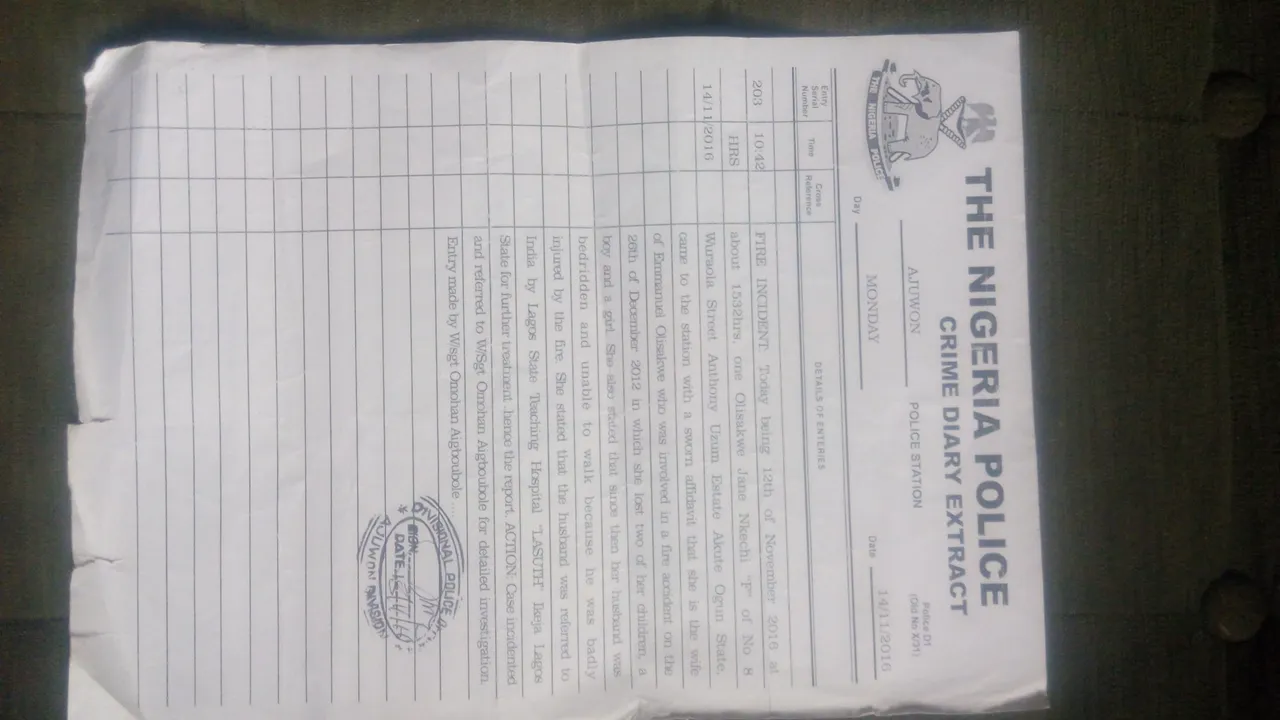 THE NIGERIA POLICE
CRIME DIARY EXTRACT
THE NIGERIA POLICE
Police D1
(Old No X/31)
AJUWON POLICE STATION
Day MONDAY Date 14/11/2016
Entry Serial Number Time Cross Reference DETAILS OF ENTERIES
203 10:42 FIRE INCIDENT: Today being 12th of November 2016 at
HRS about 1532hrs, one Olisakwe Jane Nkechi "F" of No 8
14/11/2016 Wuraola Street Anthony Uzum Estate Akute Ogun State,
came to the station with a sworn affidavit that she is the wife
of Emmanuel Olisakwe who was involved in a fire accident on the
26th of December 2012 in which she lost two of her children, a
boy and a girl. She also stated that since then her husband was
bedridden and unable to walk because he was badly
injured by the fire. She stated that the husband was referred to
India by Lagos State Teaching Hospital "LASUTH" Ikeja Lagos
State for further treatment hence the report. ACTION: Case incidented
and referred to W/Sgt Omohan Aigboubole for detailed investigation.
Entry made by W/sgt Omohan Aigboubole ....
DIVISIONAL POLICE
SIGN
DATE
AJUWON DIVISION